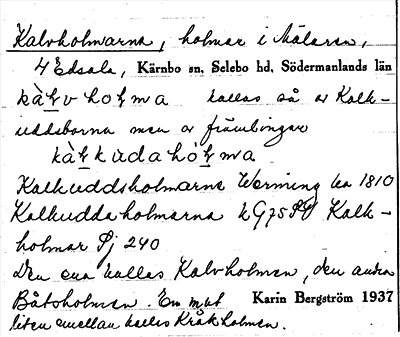 Kalvholmarna, holmar i Mälaren,
4 Edsala, Kärnbo sn, Selebo hd, Södermanlands län
kàłvhołma kallas så av Kalk-
uddsborna men av främlingar
kàłkùdahòłma
Kalkuddsholmarne Werming ca 1810
Kalkudda holmarna kG75 Kalk-
holmar Sj 240
Den ena kallas Kalvholmen, den andra
Båtsholmen. En mkt Karin Bergström 1937
liten emellan kallas Kråkholmen.